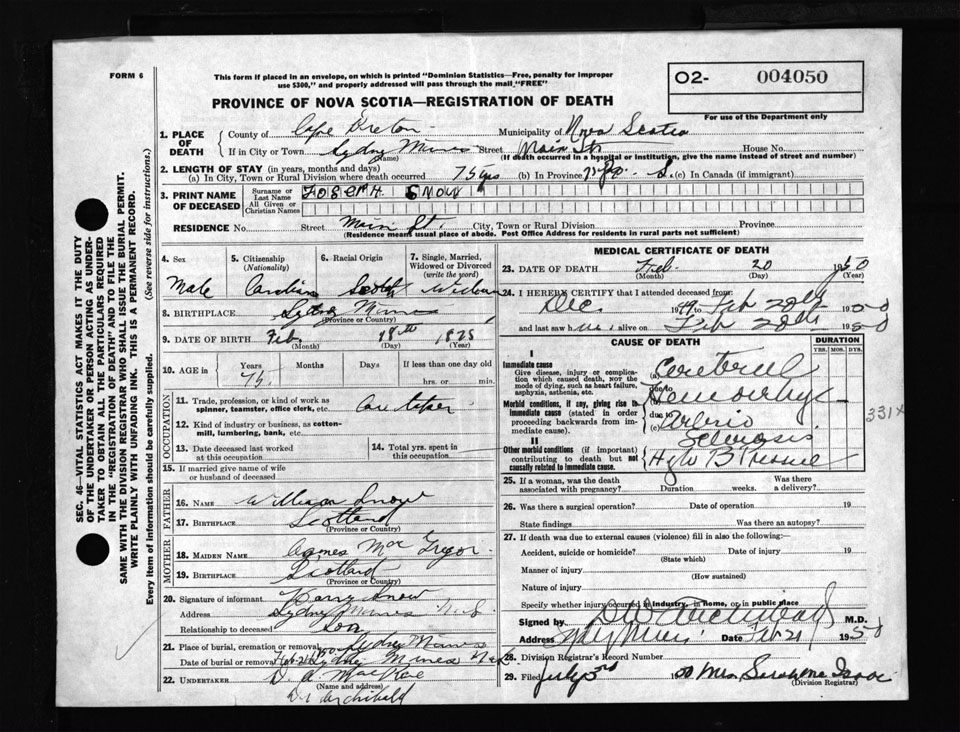 FORM 6
This form if placed in an envelope, on which is printed "Dominion Statistics—Free, penalty for improper
use $300," and properly addressed will pass through the mail "FREE"
O2- 004050
For use of the Department only
PROVINCE OF NOVA SCOTIA—REGISTRATION OF DEATH
1. PLACE OF DEATH
County of Cape Breton Municipality of Nova Scotia
If in City or Town Sydney Mines (Name) Street Main St. House No.
(If death occurred in a hospital or institution, give the name instead of street and number)
2. LENGTH OF STAY (in years, months and days)
(a) In City, Town or Rural Division where death occurred 75 yrs (b) In Province 75 (c) In Canada (if immigrant)
3. PRINT NAME OF DECEASED
Surname or Last Name JOSEPH SNOW
All Given or Christian Names
RESIDENCE No. Street Main St. City, Town or Rural Division Province
(Residence means usual place of abode. Post Office Address for residents in rural parts not sufficient)
4. Sex Male
5. Citizenship (Nationality) Canadian
6. Racial Origin Scotch
7. Single, Married, Widowed or Divorced (write the word)
8. BIRTHPLACE Sydney Mines
(Province or Country)
9. DATE OF BIRTH Feb. 18th 1875
(Month) (Day) (Year)
10. AGE in Years Months Days If less than one day
75 hrs. or min.
OCCUPATION
11. Trade, profession, or kind of work as
spinner, teamster, office clerk, etc. Care taker
12. Kind of industry or business, as cotton-
mill, lumbering, bank, etc.
13. Date deceased last worked
at this occupation
14. Total yrs. spent in
this occupation
15. If married give name of wife
or husband of deceased
FATHER
16. NAME William Snow
17. BIRTHPLACE Scotland
(Province or Country)
MOTHER
18. MAIDEN NAME Mac Gregor
19. BIRTHPLACE Scotland
(Province or Country)
20. Signature of informant Harry Snow
Address Sydney Mines N.S.
Relationship to deceased son
21. Place of burial, cremation or removal Sydney Mines
Date of burial or removal Sydney Mines
22. UNDERTAKER D. A. MacRae
(Name and address)
D. A. Archibald
MEDICAL CERTIFICATE OF DEATH
23. DATE OF DEATH Feb. 20 1950
(Month) (Day) (Year)
24. I HEREBY CERTIFY that I attended deceased from:
Dec. 1949 to Feb 20th 1950
and last saw him alive on Feb 20th 1950
CAUSE OF DEATH
DURATION
YRS. MOS. DYS.
I
Immediate cause
Give disease, injury or complica-
tion which caused death, NOT the
mode of dying, such as heart failure,
asphyxia, asthenia, etc.
(a) Cerebral
Hemorrhage
due to
Morbid conditions, if any, giving rise to
immediate cause (stated in order
proceeding backwards from im-
mediate cause).
(b)
due to
(c) Arterio
Sclerosis
331X
II
Other morbid conditions (if important)
contributing to death but not
causally related to immediate cause.
High B Pressure
25. If a woman, was the death
associated with pregnancy? Duration weeks. Was there
a delivery?
26. Was there a surgical operation? Date of operation 19
State findings Was there an autopsy?
27. If death was due to external causes (violence) fill in also the following:
Accident, suicide or homicide? (State which) Date of injury 19
Manner of injury (How sustained)
Nature of injury
Specify whether injury occurred in industry, in home, or in public place
Signed by M.D.
Address Date Feb 21 1950
28. Division Registrar's Record Number
29. Filed July 3rd 1950 Mrs.
(Division Registrar)
SEC. 46—VITAL STATISTICS ACT MAKES IT THE DUTY
OF THE UNDERTAKER OR PERSON ACTING AS UNDER-
TAKER TO OBTAIN ALL THE PARTICULARS REQUIRED
IN THE "REGISTRATION OF DEATH" AND TO FILE THE
SAME WITH THE DIVISION REGISTRAR WHO SHALL ISSUE THE BURIAL PERMIT.
WRITE PLAINLY WITH UNFADING INK. THIS IS A PERMANENT RECORD.
Every item of information should be carefully supplied. (See reverse side for instructions.)